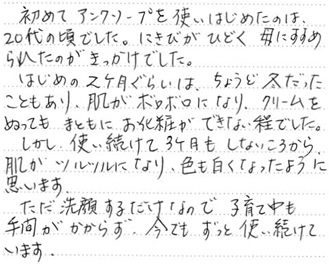 初めて アンクソープを使いはじめたのは、
20代の頃でした。にきびがひどく 母にすすめ
られたのがきっかけでした。
はじめの2ヶ月ぐらいは、ちょうど冬だった
こともあり、肌がボロボロになり、クリームを
ぬっても まともに お化粧ができない程でした。
しかし、使い続けて3ケ月もしないころから、
肌がツルツルになり、色も白くなったように
思います。
ただ洗顔するだけなので 子育て中も
手間がかからず、今でも ずっと使い続けて
います。